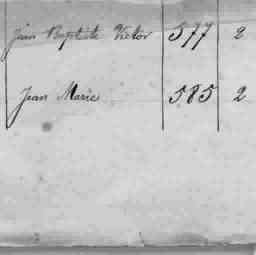 Jean Baptiste Victor 577 2
Jean Marie 585 2